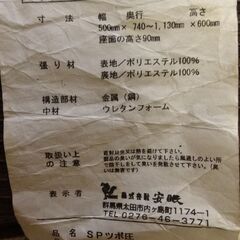 寸法 幅 奥行 高さ
500mm× 740～1,130mm ×600mm
座面の高さ90mm
張り材 表地／ポリエステル100%
裏地／ポリエステル100%
構造部材 金属（鋼）
中材 ウレタンフォーム
取扱い上の注意
表示者 株式会社 安眠
群馬県太田市内ヶ島町1174-1
TEL 0276-46-3771
品名 SPツボ圧